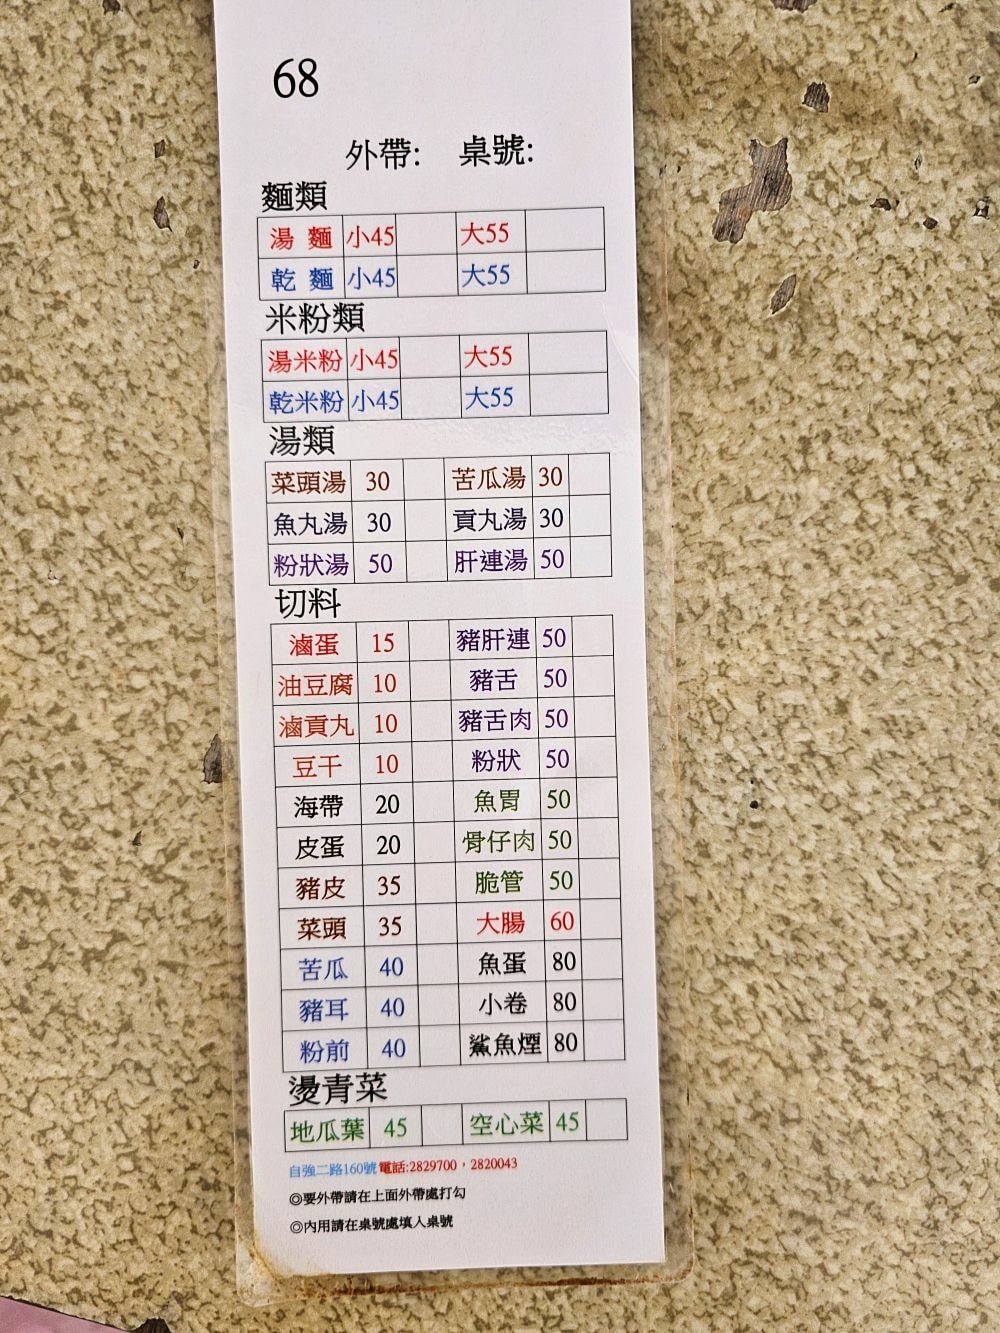 68
外帶: 桌號:
麵類
湯 麵 小45 大55
乾 麵 小45 大55
米粉類
湯米粉 小45 大55
乾米粉 小45 大55
湯類
菜頭湯 30 苦瓜湯 30
魚丸湯 30 貢丸湯 30
粉狀湯 50 肝連湯 50
切料
滷蛋 15 豬肝連 50
油豆腐 10 豬舌 50
滷貢丸 10 豬舌肉 50
豆干 10 粉狀 50
海帶 20 魚胃 50
皮蛋 20 骨仔肉 50
豬皮 35 脆管 50
菜頭 35 大腸 60
苦瓜 40 魚蛋 80
豬耳 40 小卷 80
粉前 40 鯊魚煙 80
燙青菜
地瓜葉 45 空心菜 45
自強二路160號電話:2829700，2820043
◎要外帶請在上面外帶處打勾
◎內用請在桌號處填入桌號